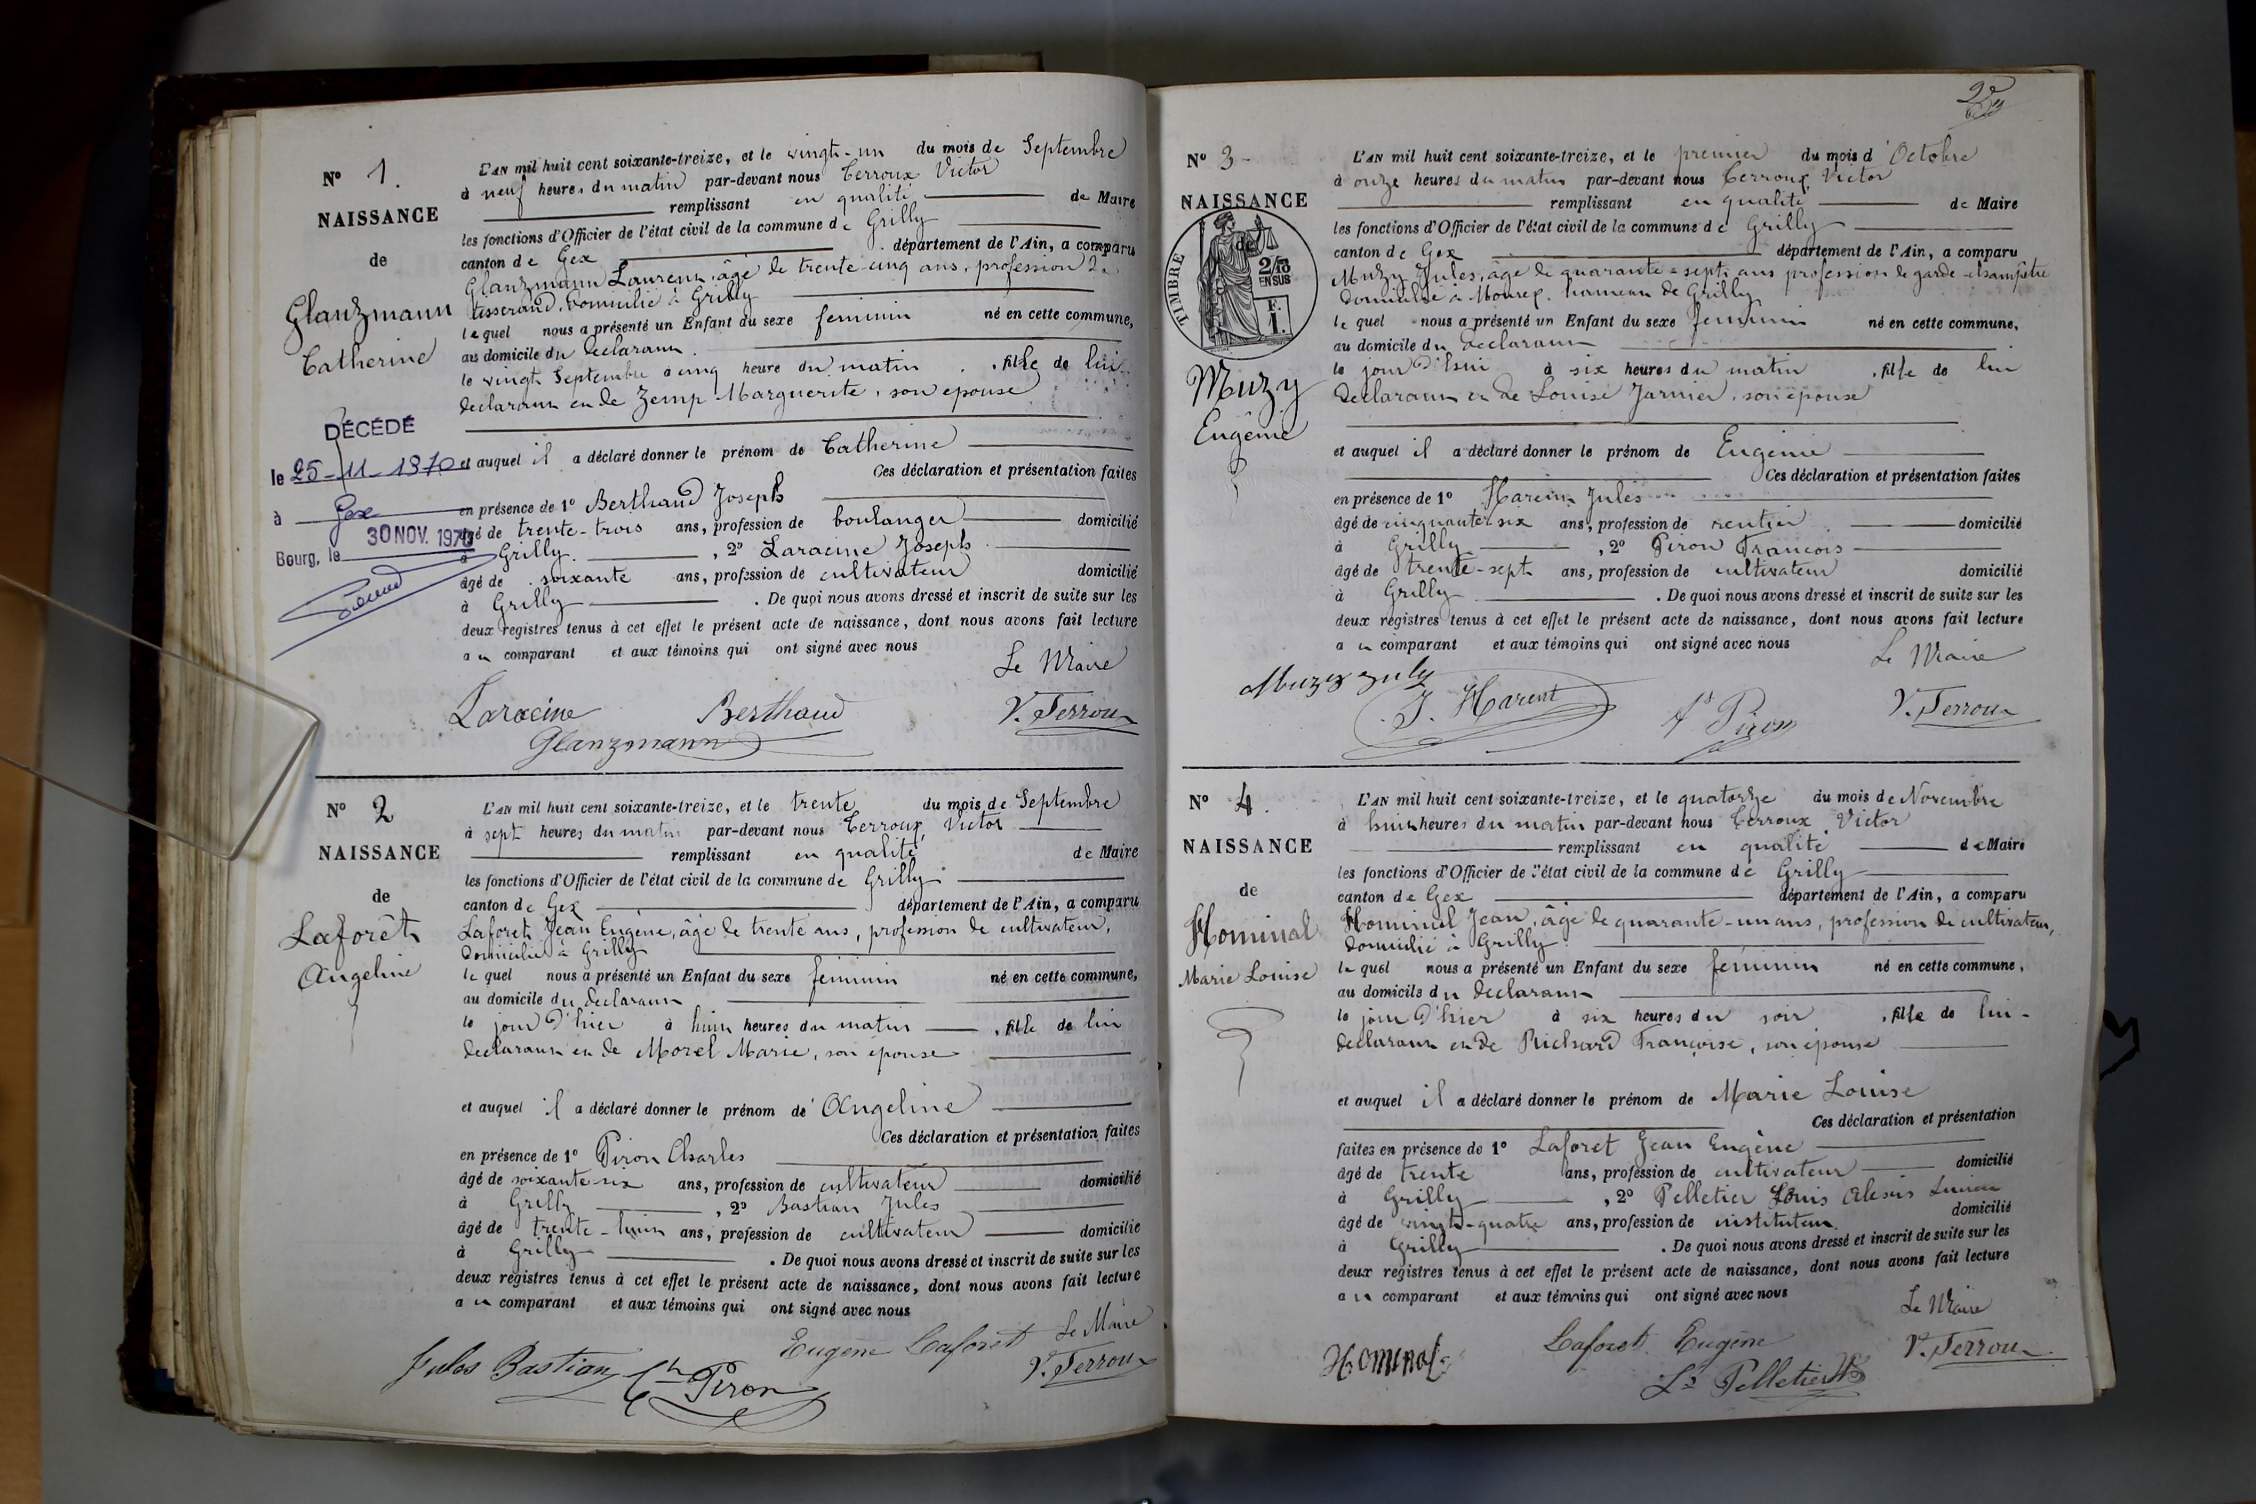 N° 1.
NAISSANCE
de
Glanzmann
Catherine
DÉCÉDÉ
le 25-11-1970
à Gex
Bourg, le 30 NOV. 1970
L'AN mil huit cent soixante-treize, et le vingt-un du mois de Septembre
à neuf heures du matin par-devant nous Terroux Victor
remplissant en qualité de Maire
les fonctions d'Officier de l'état civil de la commune de Grilly
canton de Gex département de l'Ain, a comparu
Glanzmann Laurent, âgé de trente-cinq ans, profession de
tisserand, domicilié à Grilly
lequel nous a présenté un Enfant du sexe féminin né en cette commune,
au domicile du déclarant
le vingt Septembre à cinq heure du matin, fille de lui
déclarant et de Zemp Marguerite, son épouse
et auquel il a déclaré donner le prénom de Catherine
Ces déclaration et présentation faites
en présence de 1° Berthaud Joseph
âgé de trente-trois ans, profession de boulanger domicilié
à Grilly, 2° Laracine Joseph
âgé de soixante ans, profession de cultivateur domicilié
à Grilly. De quoi nous avons dressé et inscrit de suite sur les
deux registres tenus à cet effet le présent acte de naissance, dont nous avons fait lecture
au comparant et aux témoins qui ont signé avec nous
Le Maire
Laracine Berthaud V. Terroux
Glanzmann
N° 2
NAISSANCE
de
Laforêt
Angeline
L'AN mil huit cent soixante-treize, et le trente du mois de Septembre
à sept heures du matin par-devant nous Terroux Victor
remplissant en qualité de Maire
les fonctions d'Officier de l'état civil de la commune de Grilly
canton de Gex département de l'Ain, a comparu
Laforet Jean Eugène, âgé de trente ans, profession de cultivateur,
domicilié à Grilly
lequel nous a présenté un Enfant du sexe féminin né en cette commune,
au domicile du déclarant
le jour d'hier à huit heures du matin, fille de lui
déclarant et de Morel Marie, son épouse
et auquel il a déclaré donner le prénom de Angeline
Ces déclaration et présentation faites
en présence de 1° Piron Charles
âgé de soixante-six ans, profession de cultivateur domicilié
à Grilly, 2° Bastian Jules
âgé de trente-huit ans, profession de cultivateur domicilié
à Grilly. De quoi nous avons dressé et inscrit de suite sur les
deux registres tenus à cet effet le présent acte de naissance, dont nous avons fait lecture
au comparant et aux témoins qui ont signé avec nous
Eugène Laforêt Le Maire
Jules Bastian Ch Piron V. Terroux
N° 3
NAISSANCE
de
TIMBRE
2/10
EN SUS
F.
1.
Muzy
Eugénie
L'AN mil huit cent soixante-treize, et le premier du mois d'Octobre
à onze heures du matin par-devant nous Terroux Victor
remplissant en qualité de Maire
les fonctions d'Officier de l'état civil de la commune de Grilly
canton de Gex département de l'Ain, a comparu
Muzy Jules, âgé de quarante-sept ans profession de garde-champêtre
domicilié à hameau de Grilly
lequel nous a présenté un Enfant du sexe féminin né en cette commune,
au domicile du déclarant
le jour d'hui à six heures du matin, fille de lui
déclarant et de Louise Jarnier, son épouse
et auquel il a déclaré donner le prénom de Eugénie
Ces déclaration et présentation faites
en présence de 1° Harent Jules
âgé de cinquante-six ans, profession de rentier domicilié
à Grilly, 2° Piron François
âgé de trente-sept ans, profession de cultivateur domicilié
à Grilly. De quoi nous avons dressé et inscrit de suite sur les
deux registres tenus à cet effet le présent acte de naissance, dont nous avons fait lecture
au comparant et aux témoins qui ont signé avec nous
Le Maire
Muzy July J. Harent fs Piron V. Terroux
N° 4.
NAISSANCE
de
Hominal
Marie Louise
L'AN mil huit cent soixante-treize, et le quatorze du mois de Novembre
à huit heures du matin par-devant nous Terroux Victor
remplissant en qualité de Maire
les fonctions d'Officier de l'état civil de la commune de Grilly
canton de Gex département de l'Ain, a comparu
Hominal Jean, âgé de quarante-un ans, profession de cultivateur,
domicilié à Grilly
lequel nous a présenté un Enfant du sexe féminin né en cette commune,
au domicile du déclarant
le jour d'hier à six heures du soir, fille de lui
déclarant et de Richard Françoise, son épouse
et auquel il a déclaré donner le prénom de Marie Louise
Ces déclaration et présentation
faites en présence de 1° Laforet Jean Eugène
âgé de trente ans, profession de cultivateur domicilié
à Grilly, 2° Pelletier Louis Alexis Lucien
âgé de vingt-quatre ans, profession de instituteur domicilié
à Grilly. De quoi nous avons dressé et inscrit de suite sur les
deux registres tenus à cet effet le présent acte de naissance, dont nous avons fait lecture
au comparant et aux témoins qui ont signé avec nous
Le Maire
Hominal Laforet Eugène V. Terroux
Ls Pelletier